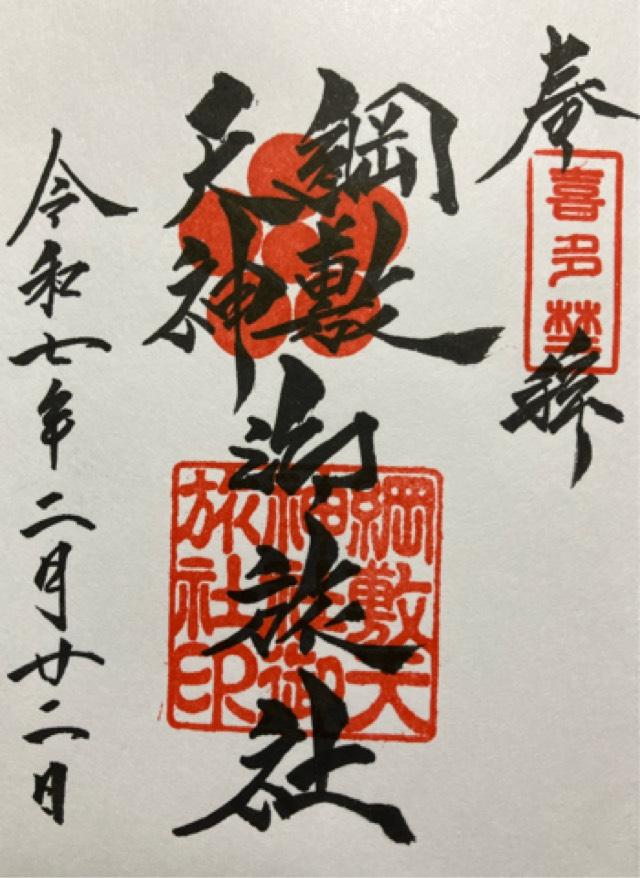 奉拝
喜多埜
綱敷
天神
御旅社
綱敷天
神社御
旅社印
令和七年二月廿二日